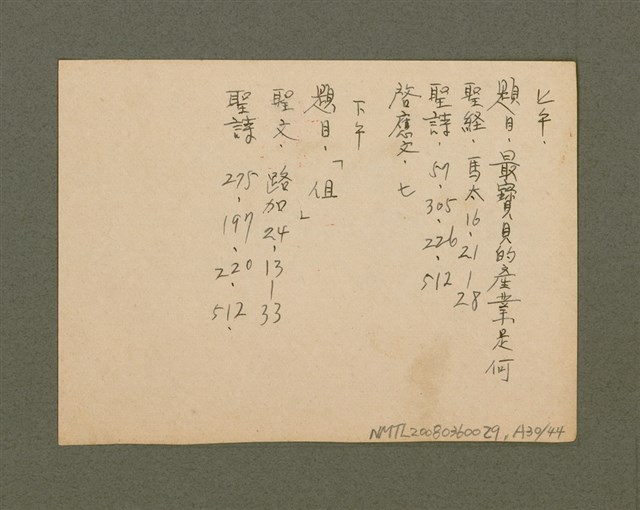 上午.
題目.最寶貝的產業是何
聖経.馬太16.21-28
聖詩.57.305.226.512
啓應文.七
下午
題目.「俎」
聖文.路加24.13-33
聖詩 275.197.220.512.
NMTL20080360029, A30/44